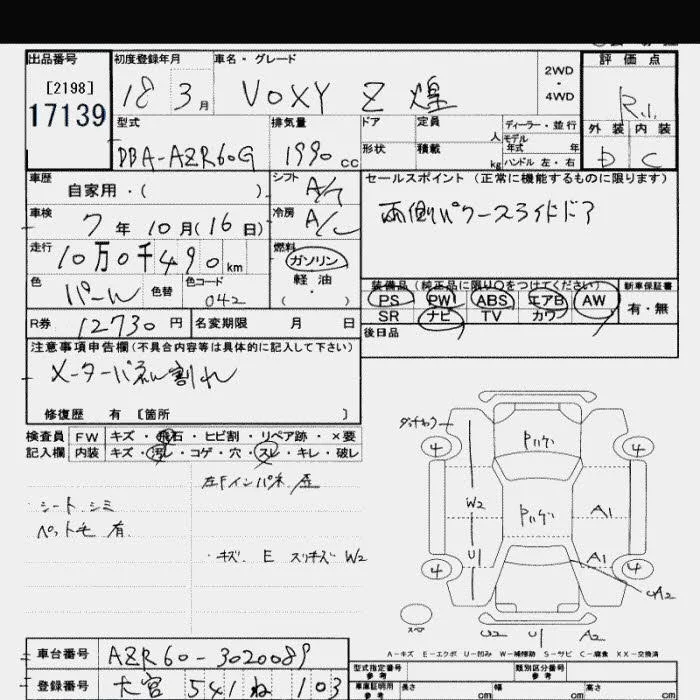 出品番号
[2198]
17139
初度登録年月 車名・グレード
18 3月 VOXY Z 煌
2WD
・
4WD
評価点
R.1.
外装 内装
D C
型式 排気量 ドア 定員 人 ディーラー・並行
DBA-AZR60G 1990cc 形状 積載 kg モデル年式 年
ハンドル 左・右
車歴 自家用・( )
シフト A/T
車検 7年10月(16日)
冷房 A/C
走行 10万0千490km
燃料 ガソリン
軽油
( ・ )
色 パール 色替 色コード 042
R券 12730円 名変期限 月 日
セールスポイント (正常に機能するものに限ります)
両側パワースライドドア
装備品 (純正品に限り○をつけてください) 新車保証書
PS PW ABS エアB AW 有・無
SR ナビ TV カワ
後日品
注意事項申告欄(不具合内容等は具体的に記入して下さい)
メーターパネル割れ
修復歴 有 [箇所 ]
検査員 FW キズ・飛石・ヒビ割・リペア跡・×要
記入欄 内装 キズ・汚レ・コゲ・穴・スレ・キレ・破レ
シート シミ
ペット毛 有
左Fインパネ
・キズ E スリキズ W2
4 4
W2 A1
U1 A1
4 4
W2 U1 A2
A-キズ E-エクボ U-凹み W-補修跡 S-サビ C-腐食 XX-交換済
車台番号 AZR60-3020089
登録番号 大宮 541 ね 103
型式指定番号 参考 類別区分番号 参考
車庫証明用 参考 長さ cm 幅 cm 高さ cm